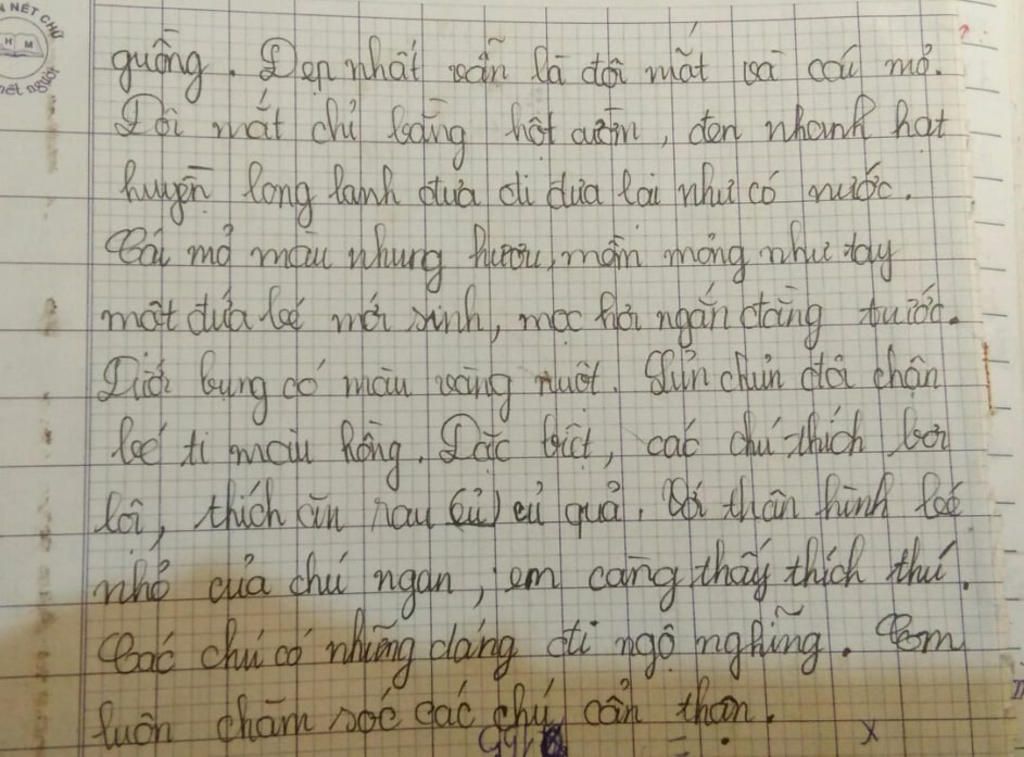 NÉT CHỮ
H M
nết người
guồng. Đẹp nhất vẫn là đôi mắt và cái mỏ.
Đôi mắt chỉ bằng hột cườm, đen nhanh hạt
huyền long lanh đưa đi đưa lại như có nước.
Cái mỏ màu nhung hươu, mềm mỏng như tay
một đứa bé mới sinh, mọc hơi ngắn đằng trước.
Dưới bụng có màu vàng nuột. Lủn chủn đôi chân
bé tí màu hồng. Đặc biệt, các chú thích bơi
lội, thích ăn rau (củ) củ quả. Với thân hình bé
nhỏ của chú ngan, em càng thấy thích thú.
Các chú có những dáng đi ngộ nghĩng. Em
luôn chăm sóc các chú cẩn thận.